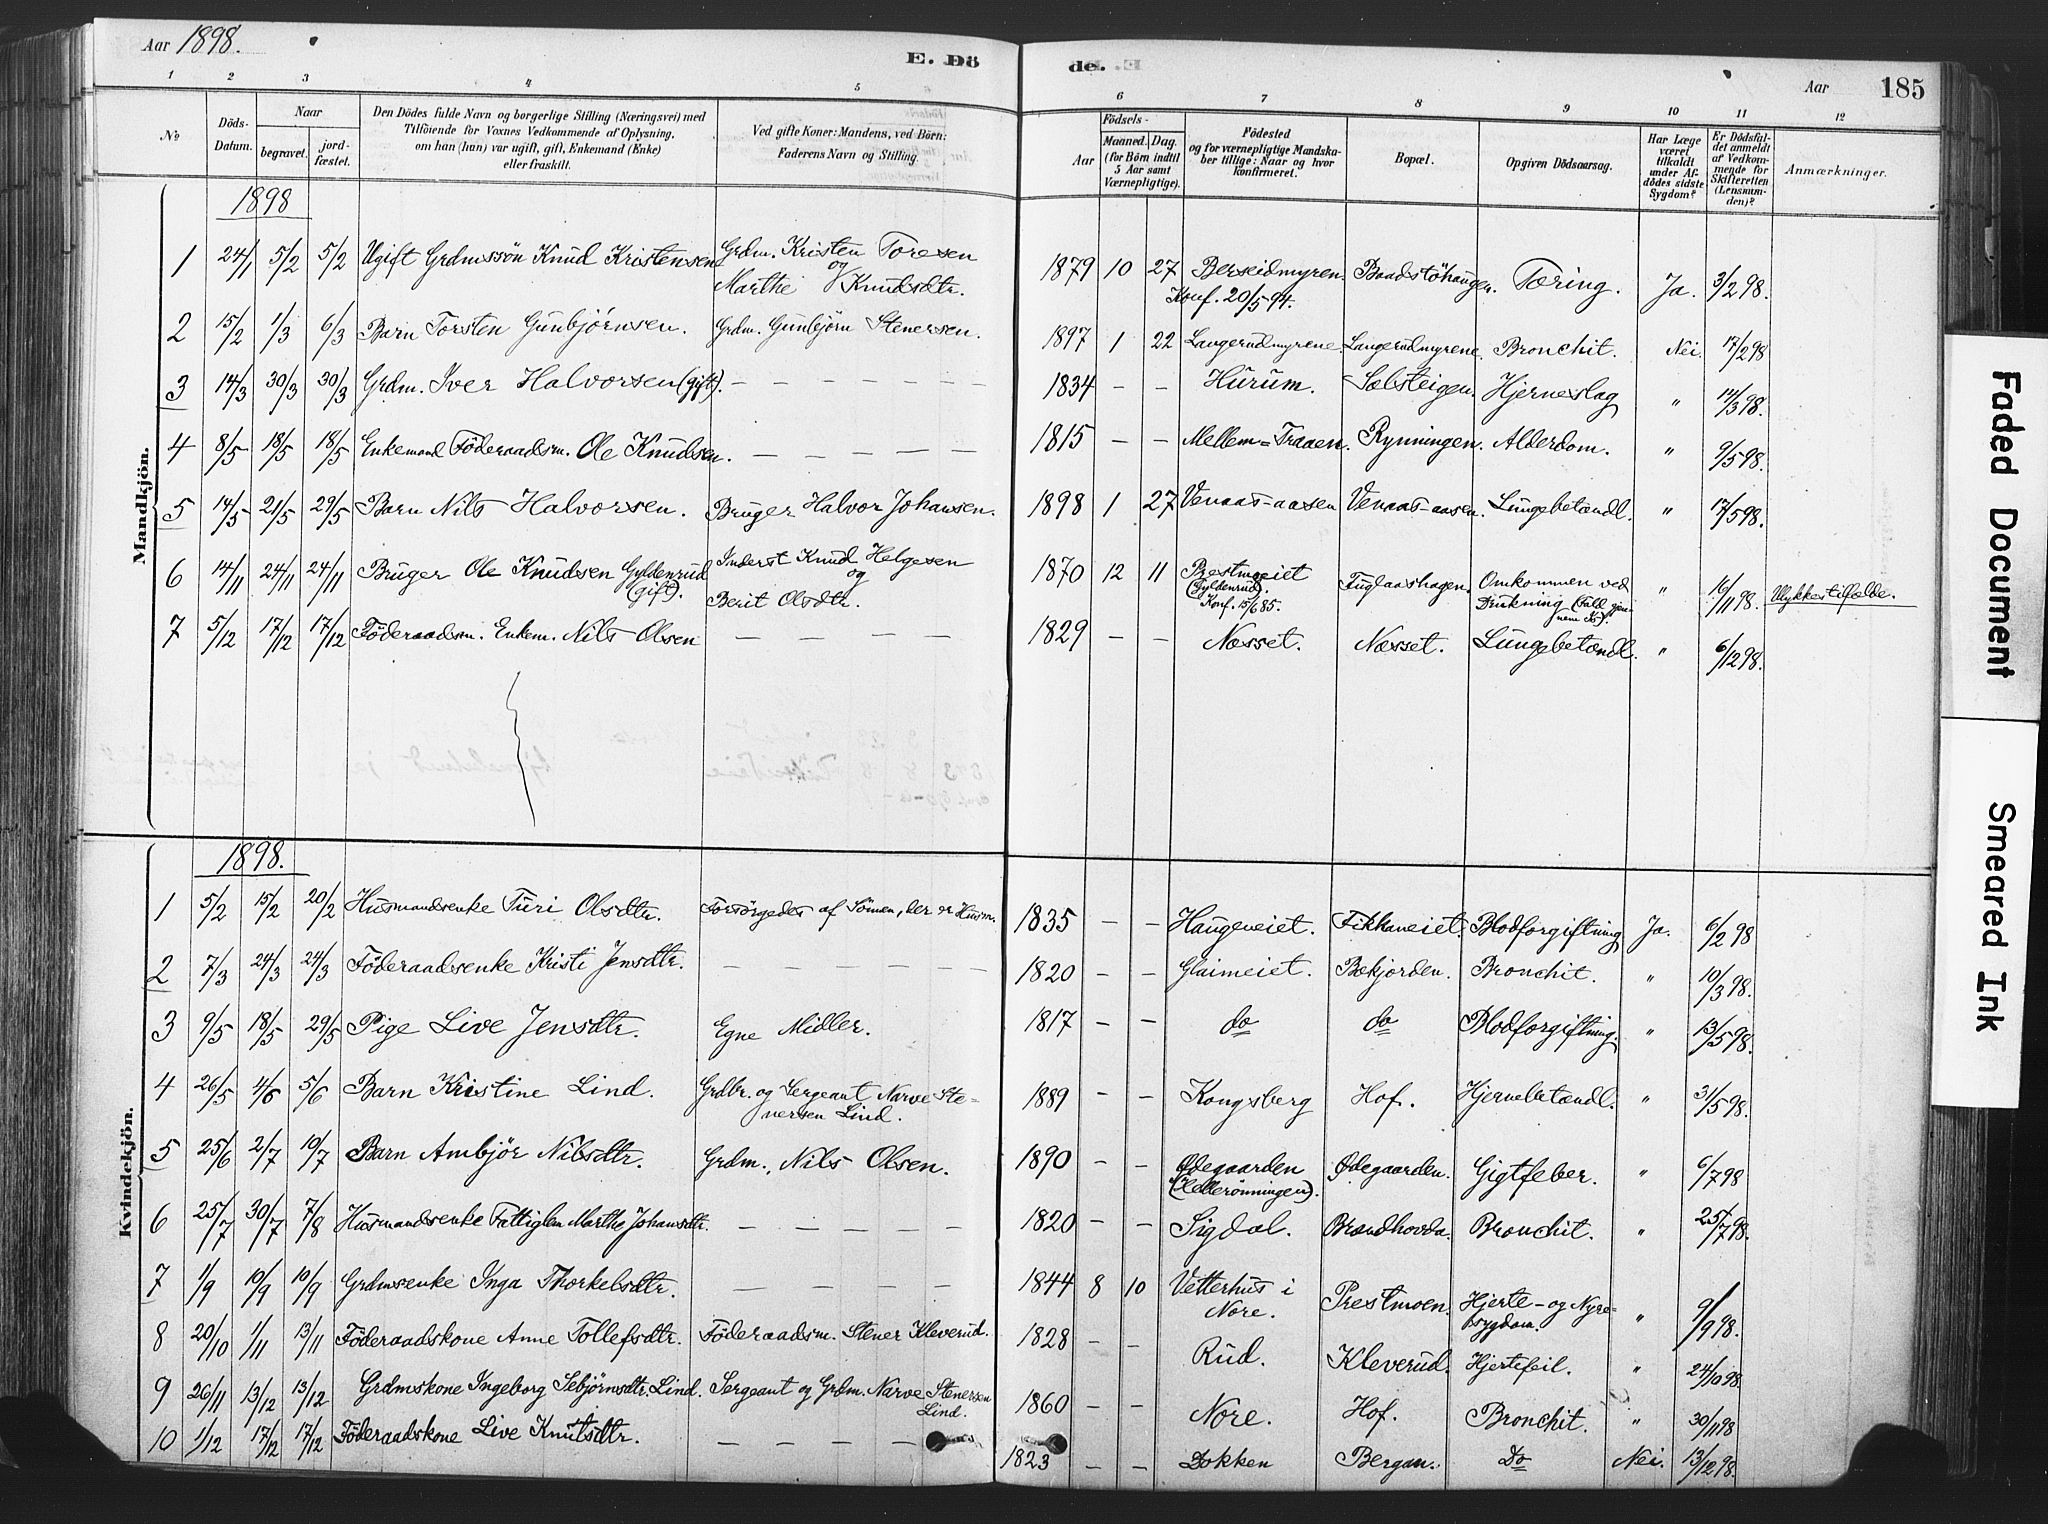 Aar 1898.
E. Dö
de.
Aar
185
1 2 3 4 5 6 7 8 9 10 11 12
No
Döds-Datum.
Naar
begravet.
jord-fæstet.
Den Dödes fulde Navn og borgerlige Stilling (Næringsvei) med
Tilföiende for Voxnes Vedkommende af Oplysning,
om han (hun) var ugift, gift, Enkemand (Enke)
eller fraskilt.
Ved gifte Koner: Mandens, ved Börn:
Faderens Navn og Stilling.
Födsels-
Aar
Maaned. Dag.
(for Börn indtil
5 Aar samt
Værnepligtige).
Födested
og for værnepligtige Mandska-
ber tillige: Naar og hvor
konfirmeret.
Bopæl.
Opgiven Dödsaarsag.
Har Læge
været
tilkaldt
under Af-
dödes sidste
Sygdom?
Er Dödsfal-
det anmeldt
af Vedkom-
mende for
Skifteretten
(Lensman-
den)?
Anmærkninger.
Mandkjön.
1898
1 24/1 5/2 5/2 Ugift Grdmssön Knud Kristensen Grdm. Kristen Toresen og Marthe Knudsdtr. 1879 10 27 Berseidmyren Konf. 20/5 94. Baadstöhaugen. Tæring. Ja. 3/2 98.
2 15/2 1/3 6/3 Barn Torsten Gunbjörnsen. Grdm. Gunbjörn Stenersen. 1897 1 22 Langerudmyrene. Langerudmyrene. Bronchit. Nei. 17/2 98
3 14/3 30/3 30/3 Grdm. Iver Halvorsen (gift). — — — — — 1834 — — Hurum. Solsteigen. Hjerneslag " 14/3 98.
4 8/5 18/5 18/5 Enkemand Föderaadsm. Ole Knudsen. — — — — — 1815 — — Mellem=Traaen. Rynningen. Alderdom. " 9/5 98.
5 14/5 21/5 29/5 Barn Nils Halvorsen. Bruger Halvor Johansen. 1898 1 27 Venaas-aasen Venaas-aasen. Lungebetændl. " 17/5 98.
6 14/11 24/11 24/11 Bruger Ole Knudsen Gyldenrud (gift). Inderst Knud Helgesen og Berit Olsdtr. 1870 12 11 Prestmoeiet (Gyldenrud) Konf. 15/6 85. Fuglaashagen. Omkommen ved Drukning (Fald gjennem Is). " 16/11 98. Ulykkestilfælde.
7 5/12 17/12 17/12 Föderaadsm. Enkem. Nils Olsen — — — — 1829 — — Næsset. Næsset. Lungebetændl. " 6/12 98.
Kvindekjön.
1898.
1 5/2 15/2 20/2 Husmandsenke Turi Olsdtr. Forsörgedes af Sönnen, der er Husm. 1835 — — Haugeneiet. Fikkaneiet. Blodforgiftning Ja. 6/2 98
2 7/3 24/3 24/3 Föderaadsenke Kristi Jensdtr. — — — — — — 1820 — — Glaimeiet. Bekjorden. Bronchit. " 10/3 98.
3 9/5 18/5 29/5 Pige Live Jensdtr. Egne Midler. 1817 — — do do Blodforgiftning. " 13/5 98.
4 26/5 4/6 5/6 Barn Kristine Lind. Grdbr. og Sergeant Narve Stenersen Lind. 1889 — — Kongsberg Hof. Hjernebetændl. " 31/5 98.
5 25/6 2/7 10/7 Barn Ambjör Nilsdtr. Grdm. Nils Olsen. 1890 — — Ødegaarden (Hellerönningen). Ødegaarden. Gigtfeber. " 6/7 98
6 25/7 30/7 7/8 Husmandsenke Fattiglem Marthe Johansdtr. — — — — — 1820 — — Sigdal. Brandhovda. Bronchit. " 25/7 98.
7 1/9 10/9 10/9 Grdmsenke Inga Thorkelsdtr. — — — — — 1844 8 10 Vetterhus i Nore. Prestmoen. Hjerte- og Nyresygdom. " 9/9 98.
8 20/10 1/11 13/11 Föderaadskone Anne Tollefsdtr. Föderaadsm. Stener Kleverud. 1828 — — Rud. Kleverud. Hjertefeil. " 24/10 98.
9 26/11 13/12 13/12 Grdmskone Ingeborg Sebjörnsdtr. Lind. Sergeant og Grdm. Narve Stenersen Lind. 1860 — — Nore. Hof. Bronchit. " 30/11 98
10 1/12 17/12 17/12 Föderaadskone Live Knutsdtr. — — — — 1823 — — Dokken Bergan. Do Nei. 13/12 98.
Faded Document
Smeared Ink